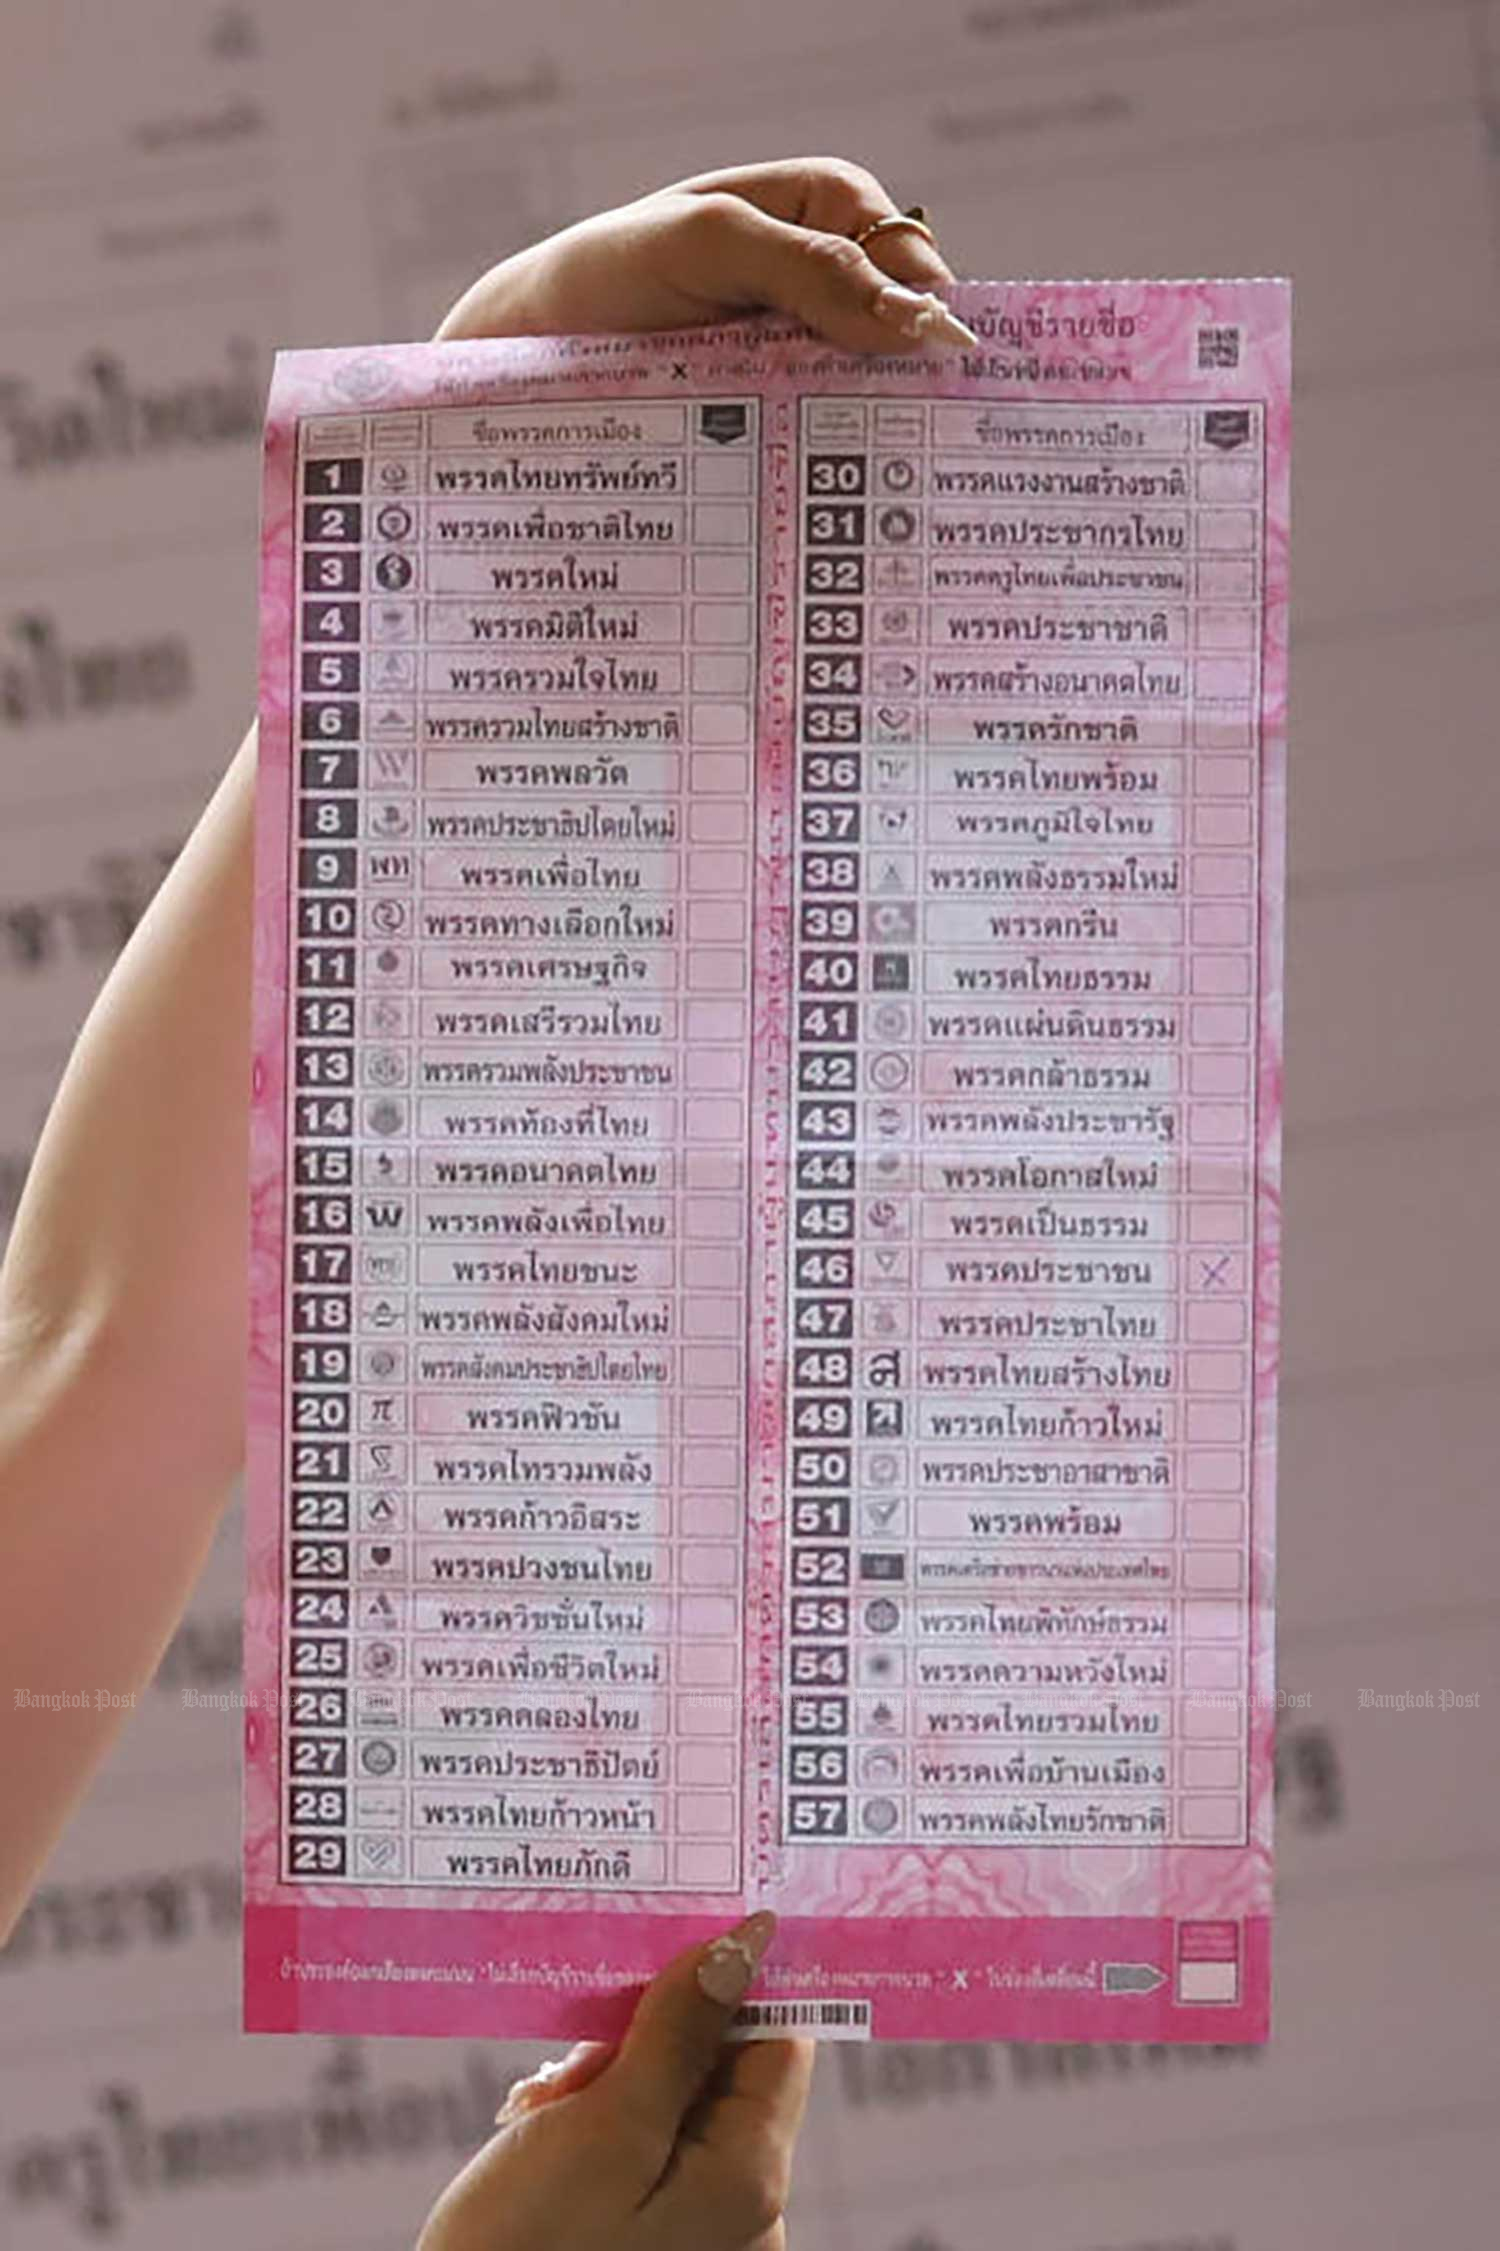 บัญชีรายชื่อ
ชื่อพรรคการเมือง
1 พรรคไทยทรัพย์ทวี
2 พรรคเพื่อชาติไทย
3 พรรคใหม่
4 พรรคมิติใหม่
5 พรรครวมใจไทย
6 พรรครวมไทยสร้างชาติ
7 พรรคพลวัต
8 พรรคประชาธิปไตยใหม่
9 พท พรรคเพื่อไทย
10 พรรคทางเลือกใหม่
11 พรรคเศรษฐกิจ
12 พรรคเสรีรวมไทย
13 พรรครวมพลังประชาชน
14 พรรคท้องที่ไทย
15 พรรคอนาคตไทย
16 พรรคพลังเพื่อไทย
17 พรรคไทยชนะ
18 พรรคพลังสังคมใหม่
19 พรรคสังคมประชาธิปไตยไทย
20 พรรคฟิวชัน
21 พรรคไทรวมพลัง
22 พรรคก้าวอิสระ
23 พรรคปวงชนไทย
24 พรรควิชชั่นใหม่
25 พรรคเพื่อชีวิตใหม่
26 พรรคคลองไทย
27 พรรคประชาธิปัตย์
28 พรรคไทยก้าวหน้า
29 พรรคไทยภักดี
ชื่อพรรคการเมือง
30 พรรคแรงงานสร้างชาติ
31 พรรคประชากรไทย
32 พรรคครูไทยเพื่อประชาชน
33 พรรคประชาชาติ
34 พรรคสร้างอนาคตไทย
35 พรรครักชาติ
36 พรรคไทยพร้อม
37 พรรคภูมิใจไทย
38 พรรคพลังธรรมใหม่
39 พรรคกรีน
40 พรรคไทยธรรม
41 พรรคแผ่นดินธรรม
42 พรรคกล้าธรรม
43 พรรคพลังประชารัฐ
44 พรรคโอกาสใหม่
45 พรรคเป็นธรรม
46 พรรคประชาชน X
47 พรรคประชาไทย
48 พรรคไทยสร้างไทย
49 พรรคไทยก้าวใหม่
50 พรรคประชาอาสาชาติ
51 พรรคพร้อม
52 พรรคเครือข่ายชาวนาแห่งประเทศไทย
53 พรรคไทยพิทักษ์ธรรม
54 พรรคความหวังใหม่
55 พรรคไทยรวมไทย
56 พรรคเพื่อบ้านเมือง
57 พรรคพลังไทยรักชาติ
Bangkok Post Bangkok Post Bangkok Post Bangkok Post Bangkok Post Bangkok Post Bangkok Post Bangkok Post Bangkok Post